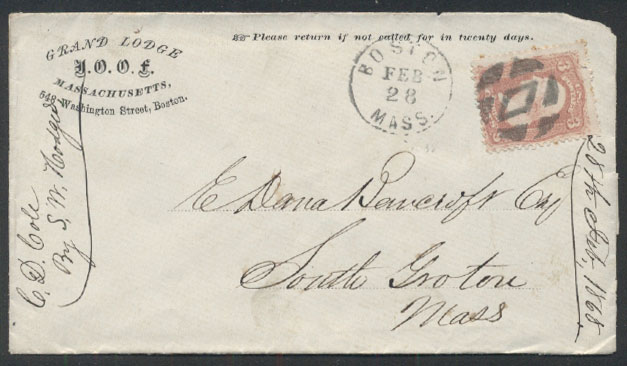 GRAND LODGE
I.O.O.F.
MASSACHUSETTS,
548 Washington Street, Boston.
☞ Please return if not called for in twenty days.
BOSTON
FEB
28
MASS.
3 3
E Dana Bancroft Esq
South Groton
Mass
C. D. Cole
By S. W. Hodges
28th Feb, 1868